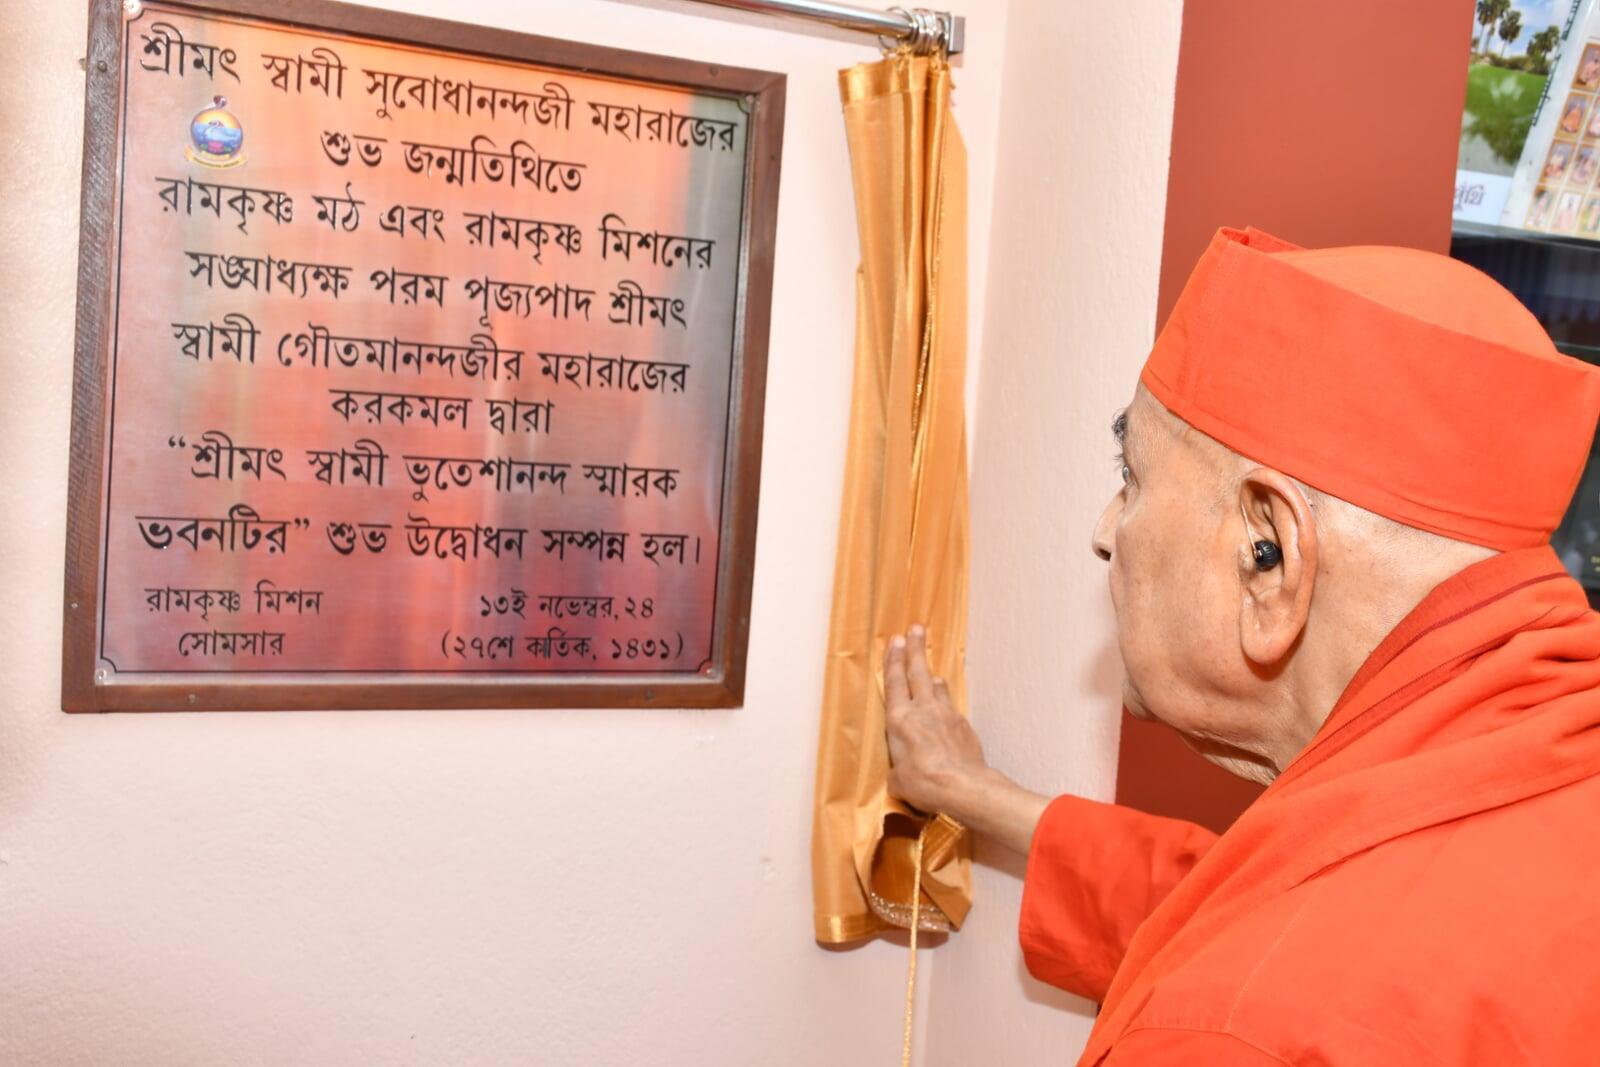 শ্রীমৎ স্বামী সুবোধানন্দজী মহারাজের
শুভ জন্মতিথিতে
রামকৃষ্ণ মঠ এবং রামকৃষ্ণ মিশনের
সঙ্ঘাধ্যক্ষ পরম পূজ্যপাদ শ্রীমৎ
স্বামী গৌতমানন্দজীর মহারাজের
করকমল দ্বারা
“শ্রীমৎ স্বামী ভুতেশানন্দ স্মারক
ভবনটির” শুভ উদ্বোধন সম্পন্ন হল।
রামকৃষ্ণ মিশন ১৩ই নভেম্বর, ২৪
সোমসার (২৭শে কার্তিক, ১৪৩১)